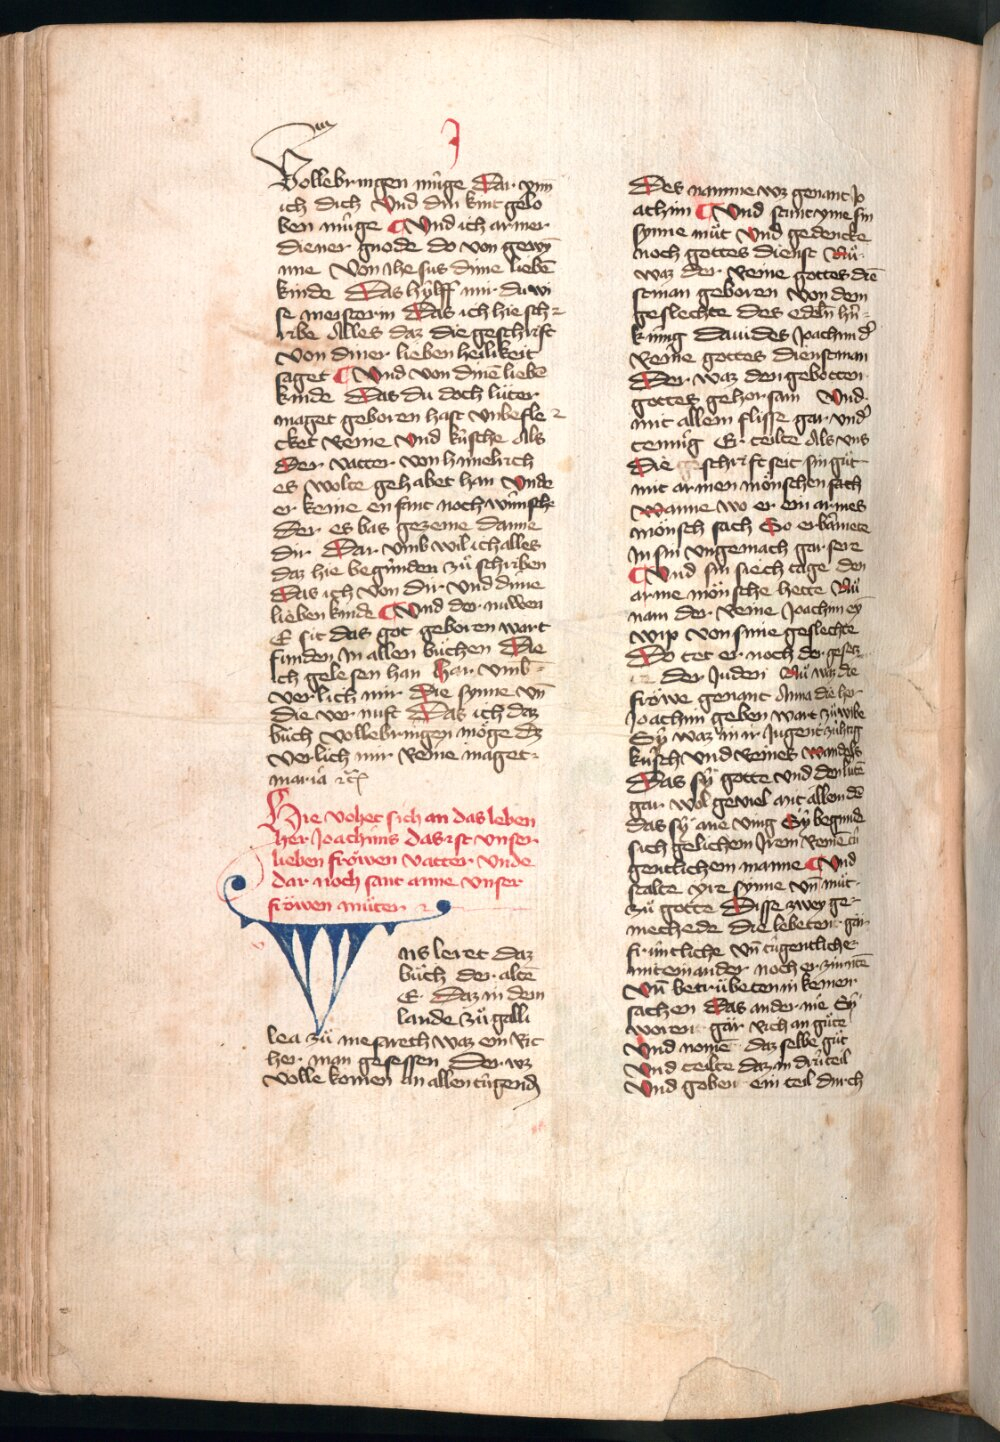 J
Vollebringen mu̍ge Dar vmͫ
ich dich Vnd din kint gelo
ben mu̍ge ¶ Vnd ich armer
diener gnode do von gewỹ
nne Von Jhesus dime liebē
kinde Das hylff mir du wi
se meisterin Das ich hie sch⸗
ribe Alles daz die geschrift
von diner lieben heilikeit
saget ¶ Vnd von dinē liebē
kinde Das du doch luter
maget geboren hast vnbefle⸗
cket Reine Vnd ku̍sche Als
Der vatter von himelrich
es wolte gehabet han Vnde
er keine en fant noch wu̍nsche
Der es bas gezeme danne
dir Dar vmb wil ich alles
daz hie begu̍nden zu̍ schriben
Das ich von dir vnd dime
lieben kinde ¶ Vnd der nuwen
E sit das got geboren wart
funden Jn allen bu̍chen Die
Jch gelesen han Har vmb⸗
verlich mir Die synne vn̄
die vernuft Das ich daz
bu̍ch vollebringen mo̍ge Dz
verlich mir Reine maget⸗
maria ⁊c̄
Hie vohet sich an das leben
her Joachims das ist vnser
lieben fro̍wen vatter vnde
dar noch sant anne vnser
fro̍wen mu̍ter ⁊
ns leret daz
bu̍ch der altē
E Daz in dem
lande zu̍ galli
lea zu̍ nesareth waz ein Ric
her man gesessen Der wz
volle komen an allen tu̍gend̄
Des namme wz genant Jo
achim ¶ Vnd stunt yme sin
synne mu̍t Vnd gedencke
noch gottes dienst Nu̍
waz der Reine gottes diē
stman geboren von dem
geslechte des edeln hn̄⸗
ku̍nig Dauides Joachim d̓
Reine gottes dienstman
Der waz den gebotten
gottes gehorsam Vnd
mit allem flisse gar vnd̓
tennig Er teilte Als vns
Die geschrift seit sin gu̍t
mit armen mo̍nschen sach
Wanne wo er ein armes
mo̍nsch sach So erbarmete
Jn sin vngemach gar sere
¶ Vnd sin siech tage den
arme mo̍nsche hette Nu̍
nam der Reine Joachim ey̅
wip von sime geslechte
Do tet er noch der gesetz
der Juden Nu̍ waz die
fro̍we genant Anna die her
Joachim geben wart zu̍ wibe
Sy̍ waz in ir Jugent zu̍htig
ku̍sch vnd Reines wandels
Das sy̍ gotte vnd den lutē
gar wol geviel mit allen dē
das sy̍ ane ving Sy̍ begunde
sich gelichem Jrem Reinē tu̍
gentlichem manne ¶ Vnd
stalte yre synne vn̄ mu̍t
zu̍ gotte Disse zwey ge⸗
mechede die lebeten gar
fru̍ntliche vn̄ tu̍gentliche
miteinander noch er zu̍rntē
vn̄ betru̍beten in keinen
sachen Das ander nie Sy̍
woren gar Rich an gu̍te
Vnd nomē daz selbe gu̍t
Vnd teilte daz in dru̍ teil
Vnd goben ein teil durch